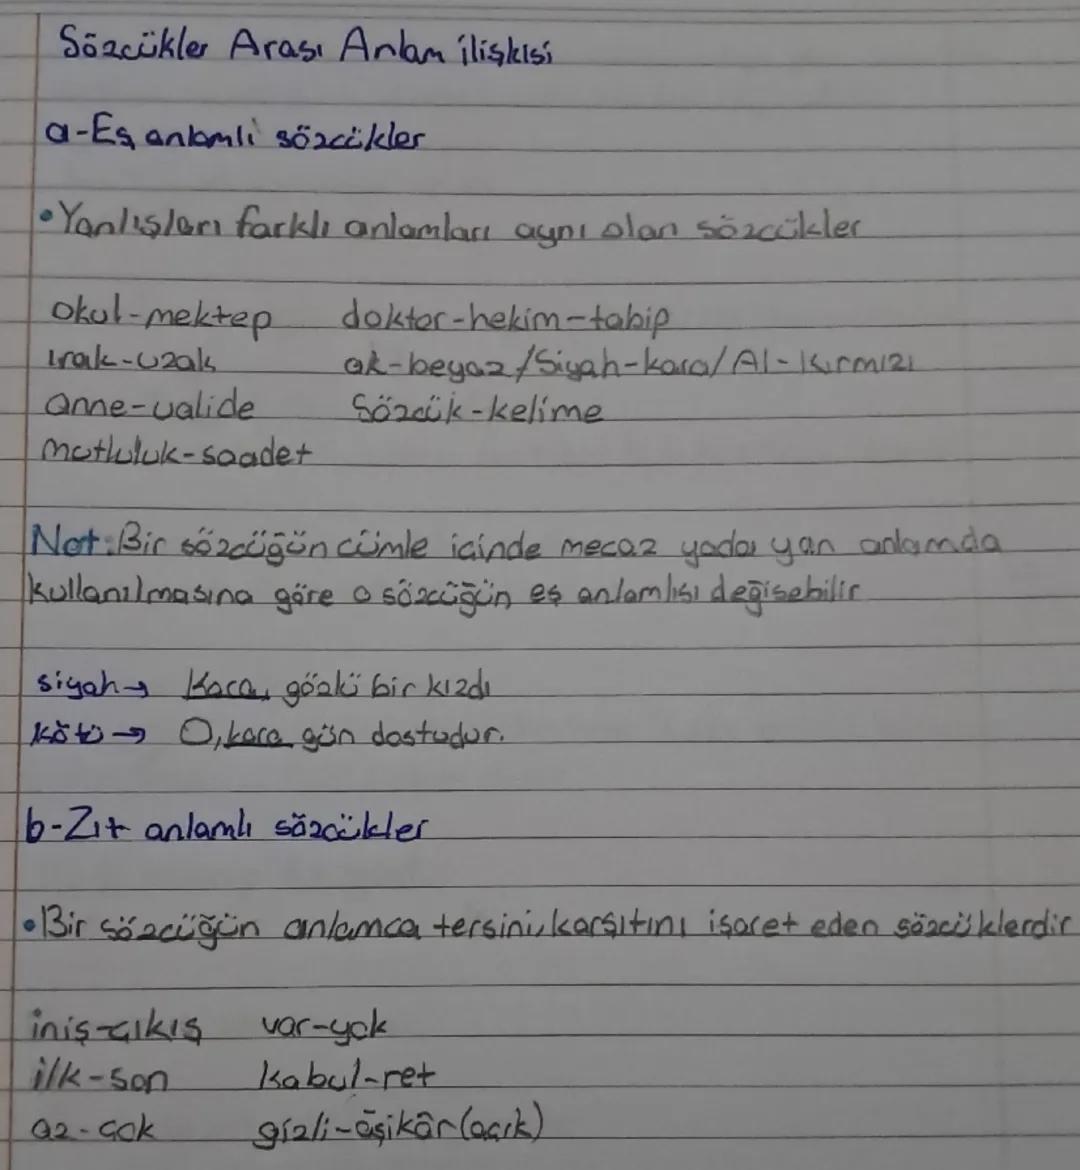 Sözcükler Arası Anlam ilişkisi
a-Eş anlamlı sözcükler
•Yanlışları farklı anlamları aynı olan sözcükler
okul-mektep doktor-hekim-tabip
ırak-uzak ak-beyaz/Siyah-kara/Al-Kırmızı
anne-valide Sözcük-kelime
mutluluk-saadet
Not:Bir sözcüğün cümle içinde mecaz yada yan anlamda
kullanılmasına göre o sözcüğün eş anlamlısı değişebilir
siyah→ Kara, gözlü bir kızdı
kötü→ O,kara gün dostudur.
b-Zıt anlamlı sözcükler
•Bir sözcüğün anlamca tersini,karşıtını işaret eden sözcüklerdir
iniş-çıkış var-yok
ilk-son kabul-ret
az-çok gizli-âşikâr(açık)